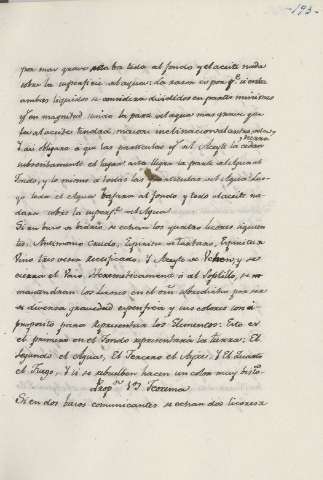 -193-
por mas grave estaba todo al fondo y el aceite nada
sobre la superficie del agua: La razon es por qᵉ si estos
ambos liquidos se consideran divididos en partes minimas
yg.ˢ en magnitud siendo la parte del agua mas grave que
la del aceite tendrá maior inclinacion al centro de la tierra
Y asi obligara á que las particulas del Aceyte le cedan
subsecuentemente el lugar asta llegar la parte del Agua al
fondo, y lo mismo á todas las particulas del Agua Lue-
go todo el Agua bajara al fondo y todo el aceite na-
dara sobre la superfᵉ del Agua
Si en baso de bidrio se echan los quatro licores siguien-
tes, Antimonio Crudo, Espiritu de Tartaro, Espiritu de
Vino tres veces Rectificado, Y Aceyte de y se
cierra el Vaso Hermeticamente ó al Soplillo, se
mantendran los licores en el orñ. por ser
de diversa gravedad especifica y sus colores son á
proposito para representar los Elementos: Esto es
el primero en el Fondo representaría la tierra: El
Segundo el Agua, El Tercero el Ayre: Y El quarto
el Fuego, Y si se rebuelben hacen un color muy bistoº.
Propᵒⁿ VI Teorema
Si en dos basos comunicantes se echan dos licores de